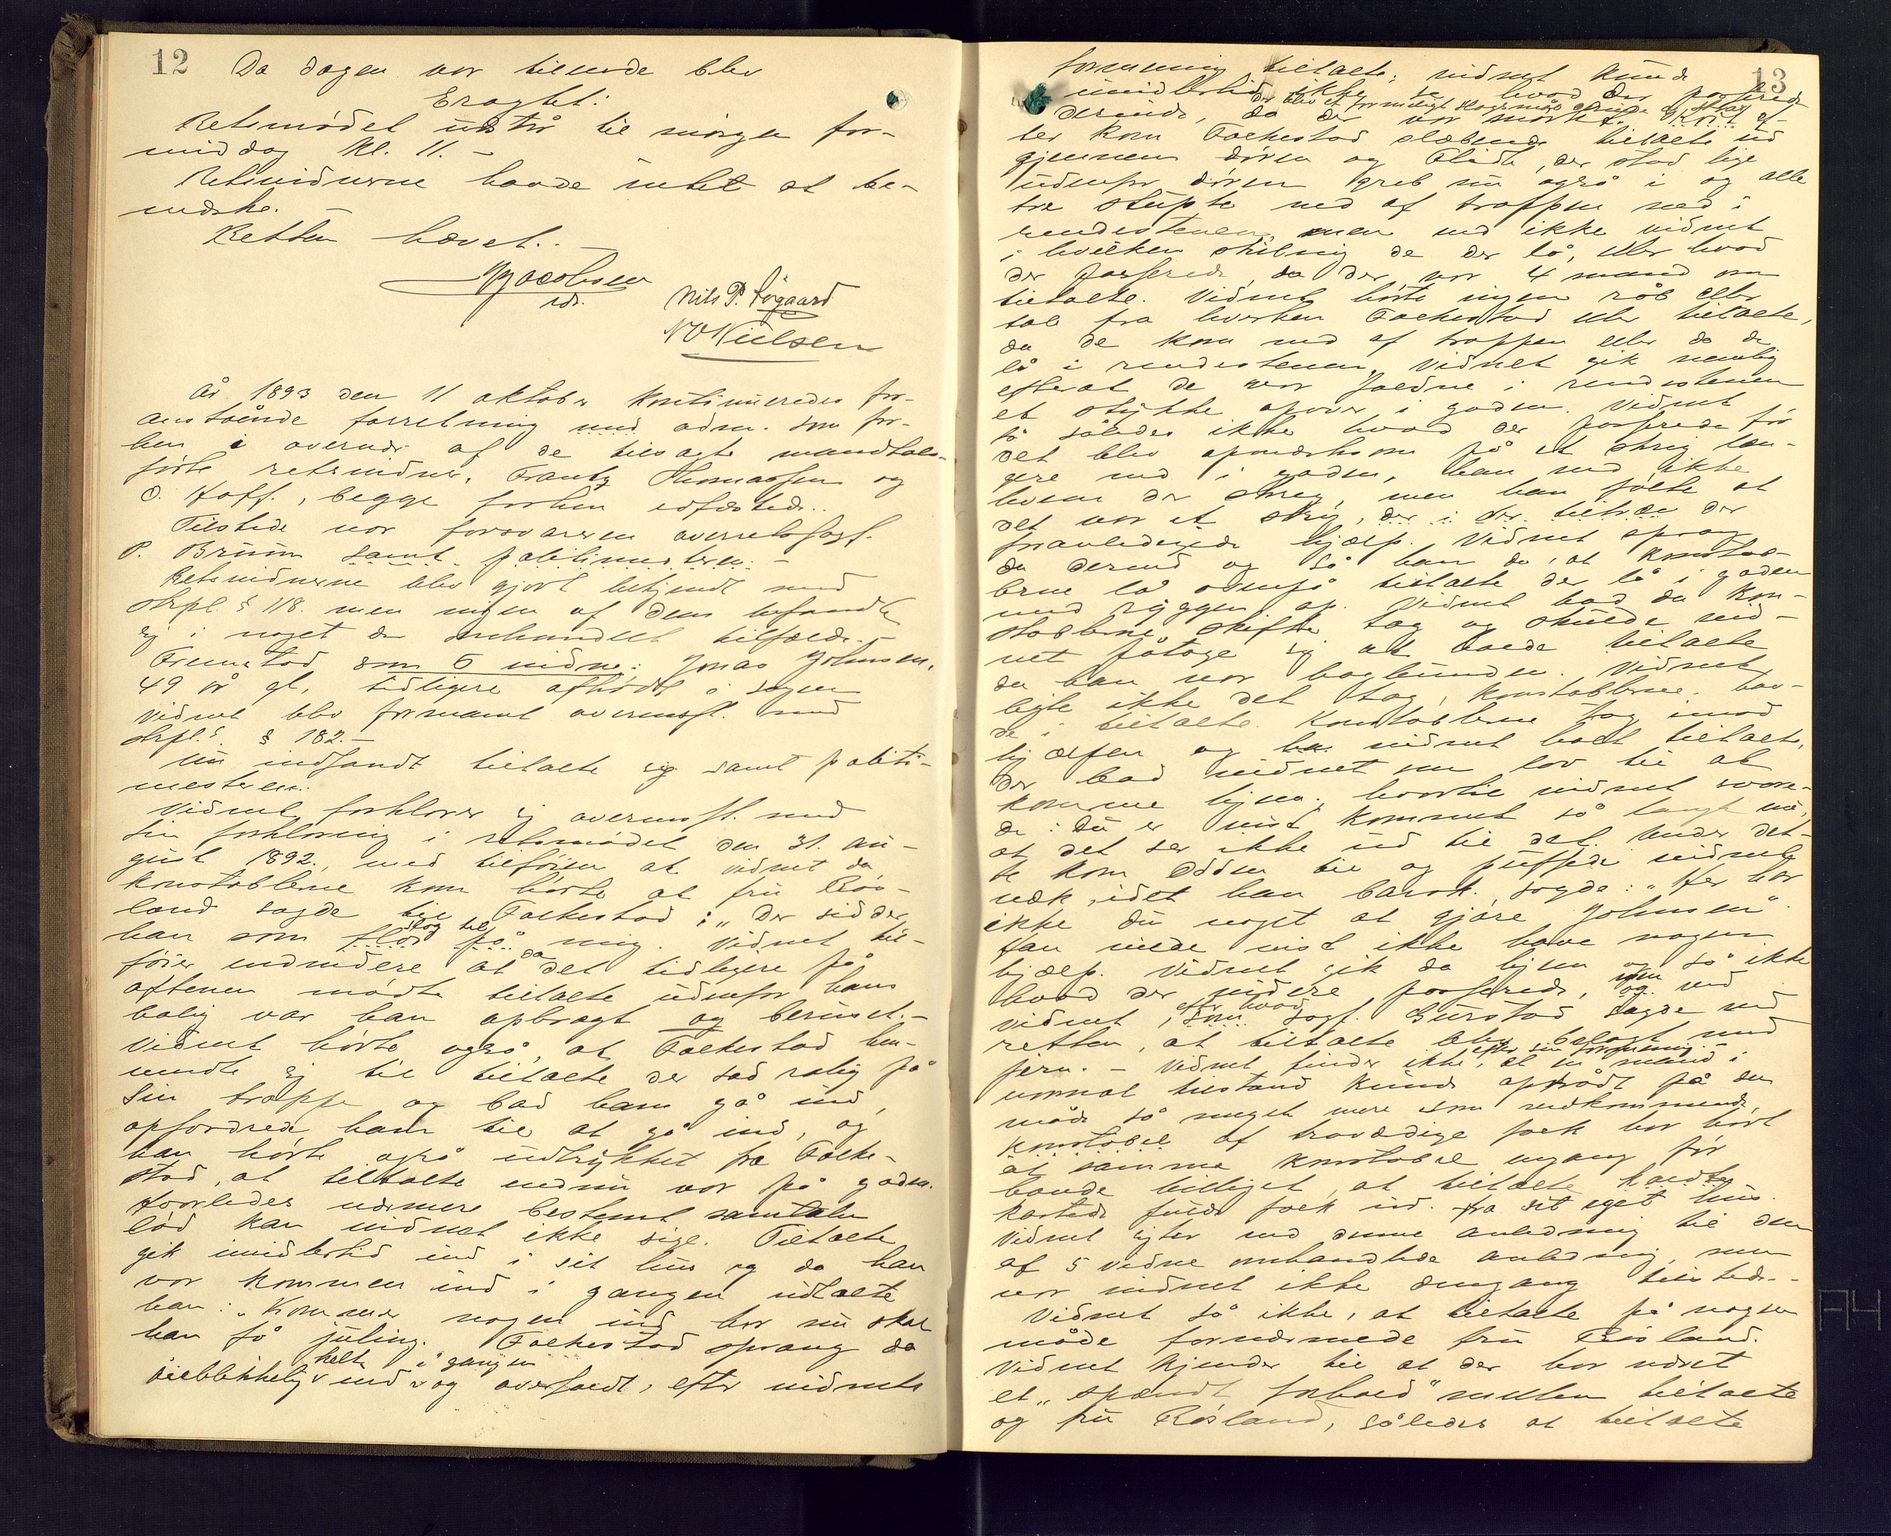 12
Da dagen var tilende blev
Eragtet:
Retsmødet udstår til morgen for-
middag kl. 11. -
Retsvidnerne havde intet at be-
mærke. -
Retten hævet. -
Jacobsen
Nils P. Søgaard
N O Nielsen
År 1893 den 11 oktober kontinueredes for-
anstående forretning med adm. som for-
hen i overvær af de tilsagte mandtals-
førte retsvidner, Frantz Thomassen og
O. Hoff, begge forhen edfæstede.
Tilstede var forsvareren overretssagf.
P. Bruun samt politimesteren. -
Retsvidnerne blev gjort bekjendt med
Strpl. § 118. men ingen af dem befandt
sig i noget der omhandlet tilfælde. -
Fremstod som 6 vidne: Jonas Johnsen,
49 år gl., tidligere afhørt i sagen
Vidnet blev formanet overensst. med
Strpl. § 182. -
Nu indfandt tiltalte sig samt politi-
mesteren.
Vidnet forklarer sig overensst. med
sin forklaring i retsmødet den 31. au-
gust 1892, med tilføien at vidnet da
konstablerne kom hørte at fru Røs-
land sagde til Falkestad: "Der sidder
han som slog til mig. Vidnet til-
føier endvidere at da det tidligere på
aftenen mødte tiltalte udenfor hans
bolig var han opbragt og beruset. -
Vidnet hørte også, at Falkestad hen-
vendte sig til tiltalte der sad rolig på
sin trappe og bad ham gå ind,
opfordrede ham til at gå ind, og
han hørte også udtrykket fra Falke-
stad, at tiltalte endnu var på gaden.
Hvorledes nærmere bestemt samtalen
lød kan vidnet ikke sige. Tiltalte
gik imidlertid ind i sit hus og da han
var kommen ind i gangen udtalte
han: "Kommer nogen ind her nu skal
han få juling. Falkestad sprang da
helt i gangen
øieblikkelig ind og overfaldt, efter vidnets
13
formening tiltalte; vidnet kunde
imidlertid ikke se hvad der passerede
der blev et formeligt slagsmål
derinde, da der var mørkt. Kort ef-
ter kom Falkestad slæbende tiltalte ud
gjennem døren og der stod lige
udenfor døren greb nu også i og alle
tre stupte ned af trappen ned i
rendestenen, men ved ikke vidnet
i hvilken stilling de der lå, eller hvad
der passerede da der var 4 mand om
tiltalte. Vidnet hørte ingen råb eller
tale fra hverken Falkestad eller tiltalte,
da de kom ned af trappen eller da de
lå i rendestenen. Vidnet gik nemlig
efterat de var faldne i rendestenen
et stykke opover i gaden. Vidnet
så således ikke hvad der passerede før
det blev opmærksom på et skrig læn-
gere ned i gaden, han ved ikke
hvem der skreg, men han følte at
det var et skrig, der i
foranledigede hjælp. Vidnet sprang
da derned og så han da, at konstab-
lerne lå ovenpå tiltalte der lå i gaden
med ryggen op. Vidnet bad da kon-
stablerne skifte tag og skulde vid-
net påtage sig at holde tiltalte
da han var bagbunden. Vidnet
ligte ikke det tag, konstablerne hav-
de i tiltalte. Konstablerne tog imod
hjælpen og vidnet holdt tiltalte,
der bad vidnet om lov til at
komme hjem, hvortil vidnet svare-
de: du er vist kommet så langt nu,
at det ser ikke ud til det. Under det-
te kom Odden til og puffede vidnet
væk, idet han barsk sagde: "Her har
ikke du noget at gjøre Johnsen".
han vilde vist ikke have nogen
hjælp. Vidnet gik da hjem og så ikke
hvad der videre passerede, men ved
vidnet, efter hvad sagf. Gurstad sagde ved
retten, at tiltalte blev belagt med
jern. - Vidnet finder ikke, efter sin formening at en mand i
normal tilstand kunde opstå på den
måde så meget mere som vedkommende
konstabel af troværdige folk har hørt
at samme konstabel engang før
havde billiget, at tiltalte
kastede fulde folk ud fra sit eget hus.
Vidnet sigter ved denne anledning til den
af 5 vidne omhandlede anledning, men
var vidnet ikke dengang tilstede. -
Vidnet så ikke, at tiltalte på nogen
måde fornærmede fru Røsland.
Vidnet kjender til at der har været
et "spændt forhold" mellem tiltalte
og fru Røsland, således at tiltalte